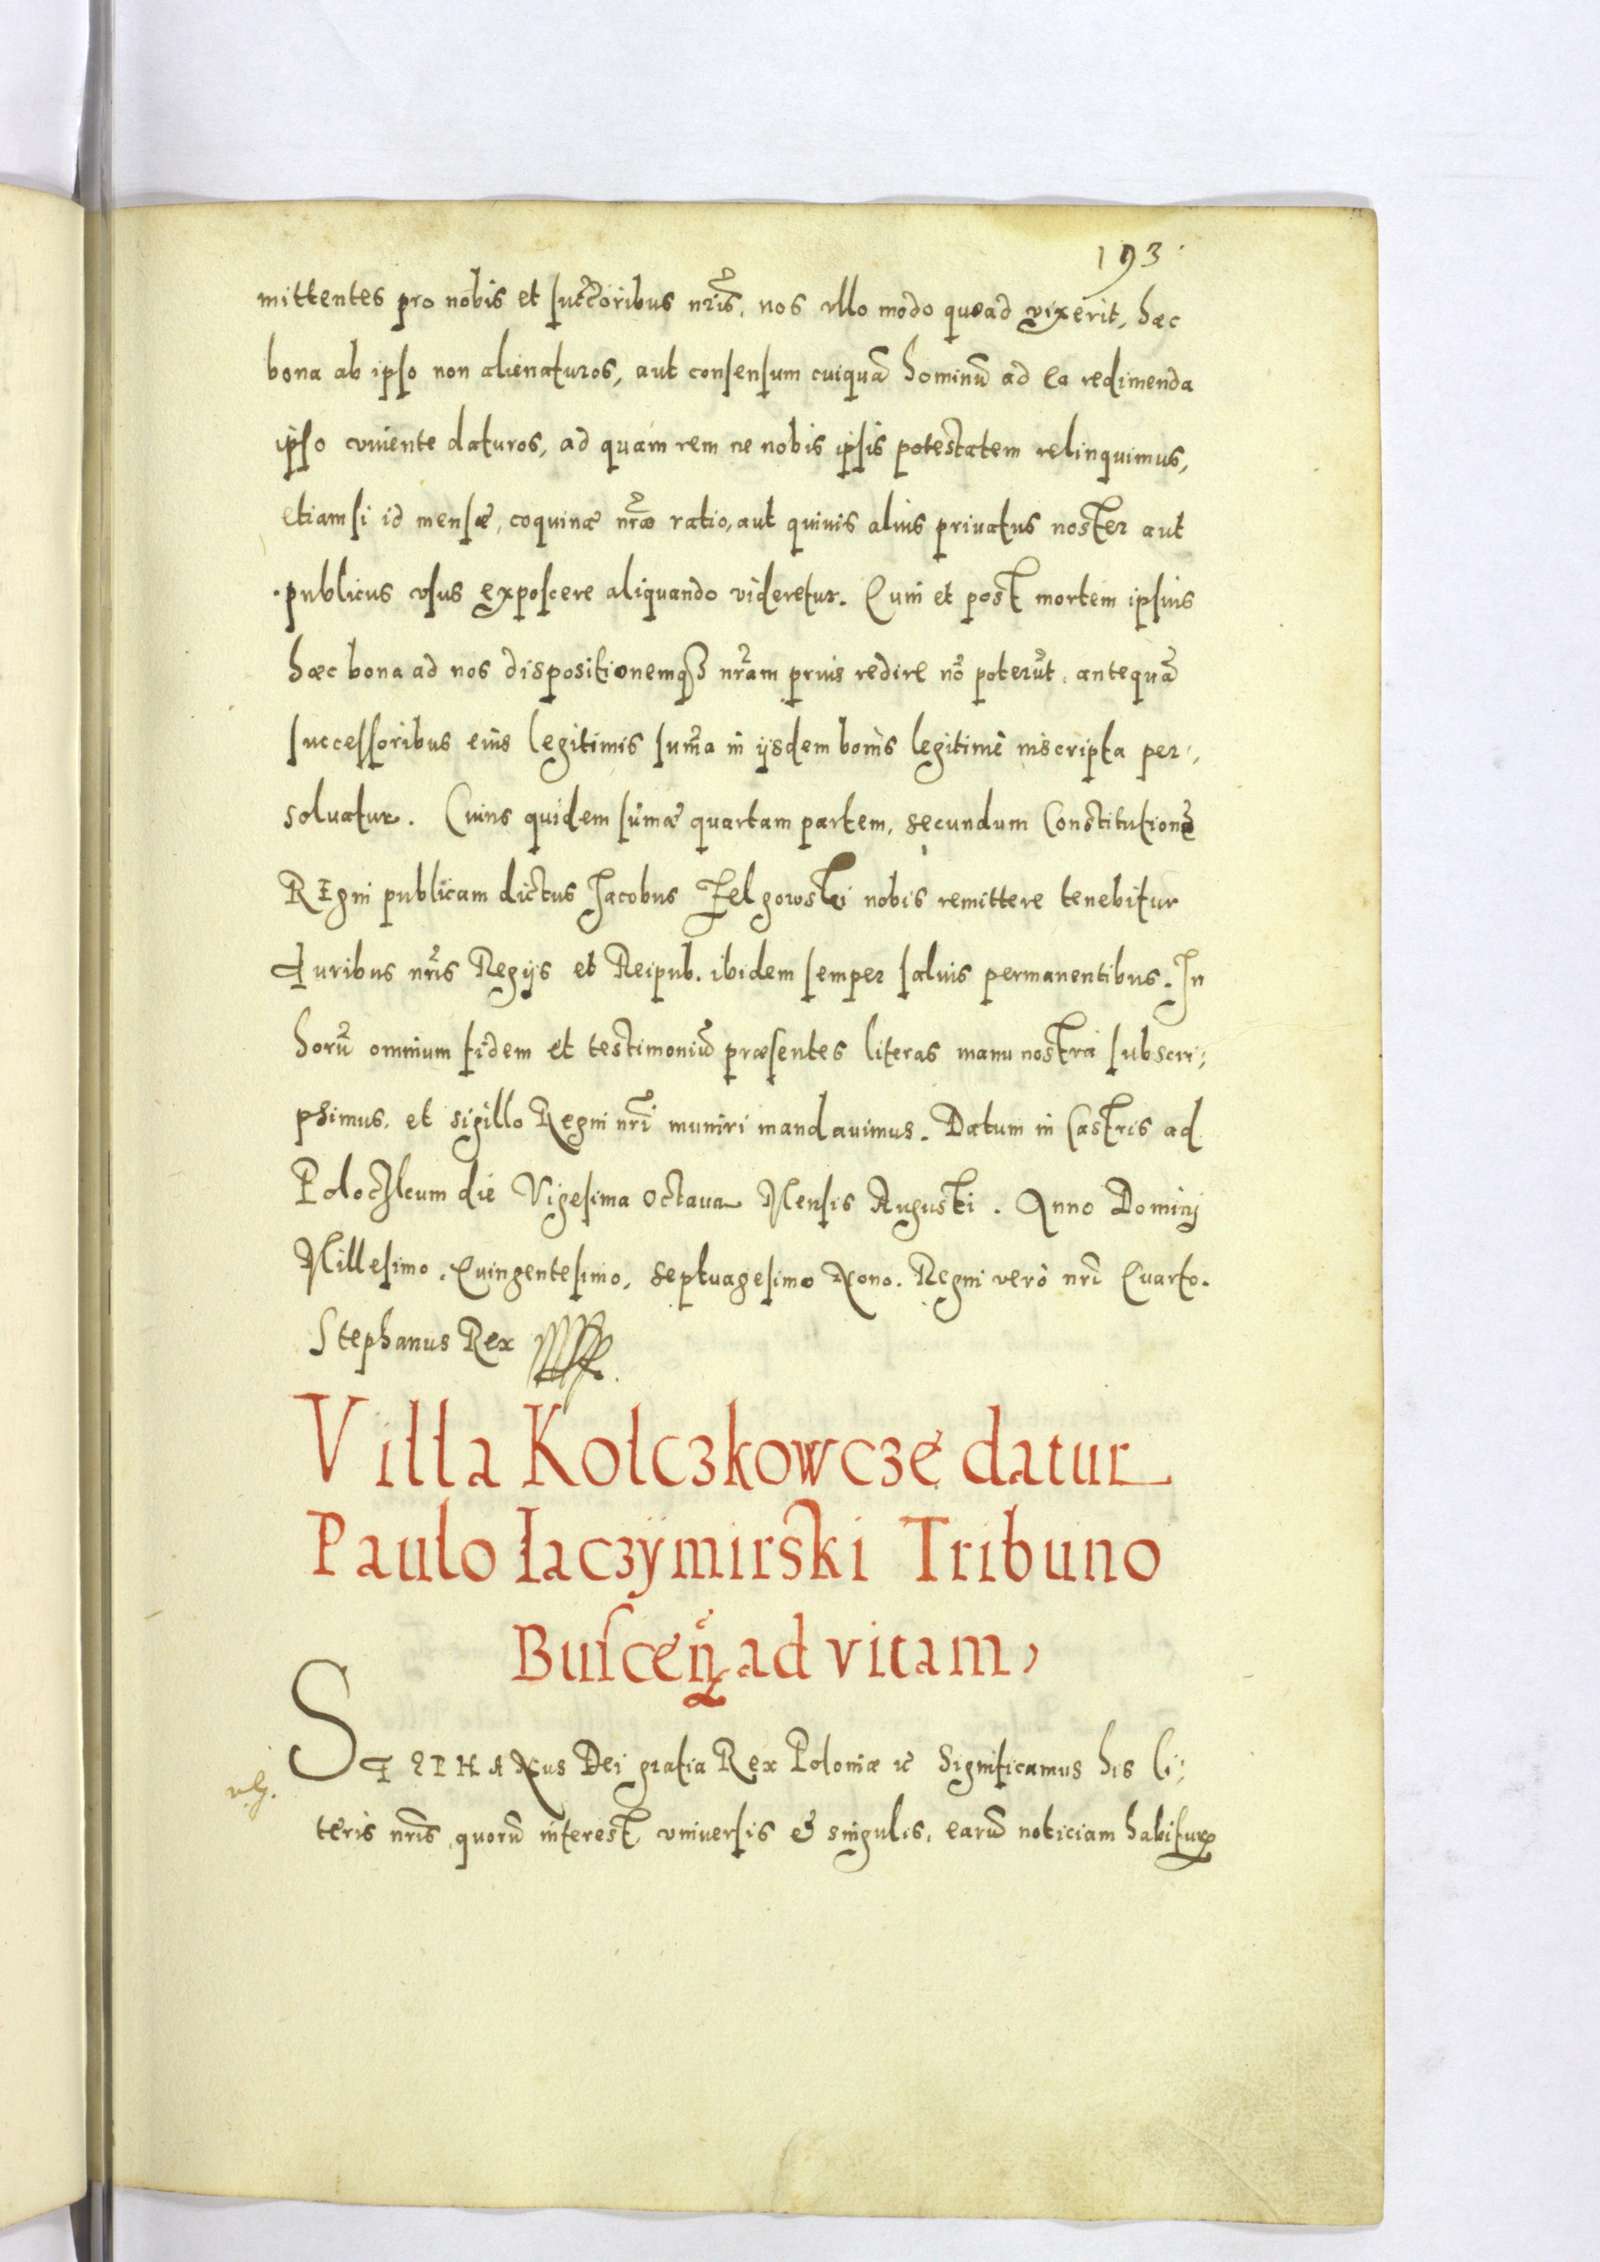 193
mittentes pro nobis et succ̃oribus nr̃is, nos ullo modo quoad vixerit, hæc
bona ab ipso non alienaturos, aut consensum cuiquã hominũ ad ea redimenda
ipso vivente daturos, ad quam rem ne nobis ipsis potestatem relinquimus,
etiamsi id mensæ, coquinæ nr̃æ ratio, aut quivis alius privatus noster aut
publicus usus exposcere aliquando videretur. Cum et post mortem ipsius
hæc bona ad nos dispositionemqꝫ nr̃am prius redire nõ poterũt, antequã
successoribus eius legitimis sum̃a in ijsdem bonis legitimè inscripta per,
solvatur. Cuius quidem sum̃æ quartam partem, secundum Constitutionẽ
Regni publicam dictus Jacobus Zelgowski nobis remittere tenebitur
Iuribus nr̃is Regijs et Reipub. ibidem semper salvis permanentibus. In
horũ omnium fidem et testimoniũ præsentes literas manu nostra subscri,
psimus, et sigillo Regni nr̃i muniri mandavimus. Datum in Castris ad
Poloczkum die Vigesima octava Mensis Augusti. Anno Dominj
Millesimo, Quingentesimo, Septuagesimo Nono. Regni verò nr̃i Quarto.
Stephanus Rex
Villa Kolczkowcze datur
Paulo Iaczymirski Tribuno
Buscen̄ ad vitam,
STEPHANus Dei gratia Rex Poloniæ ꝛc Significamus his li,
teris nr̃is, quorũ interest, universis & singulis, earũ noticiam habituꝝ